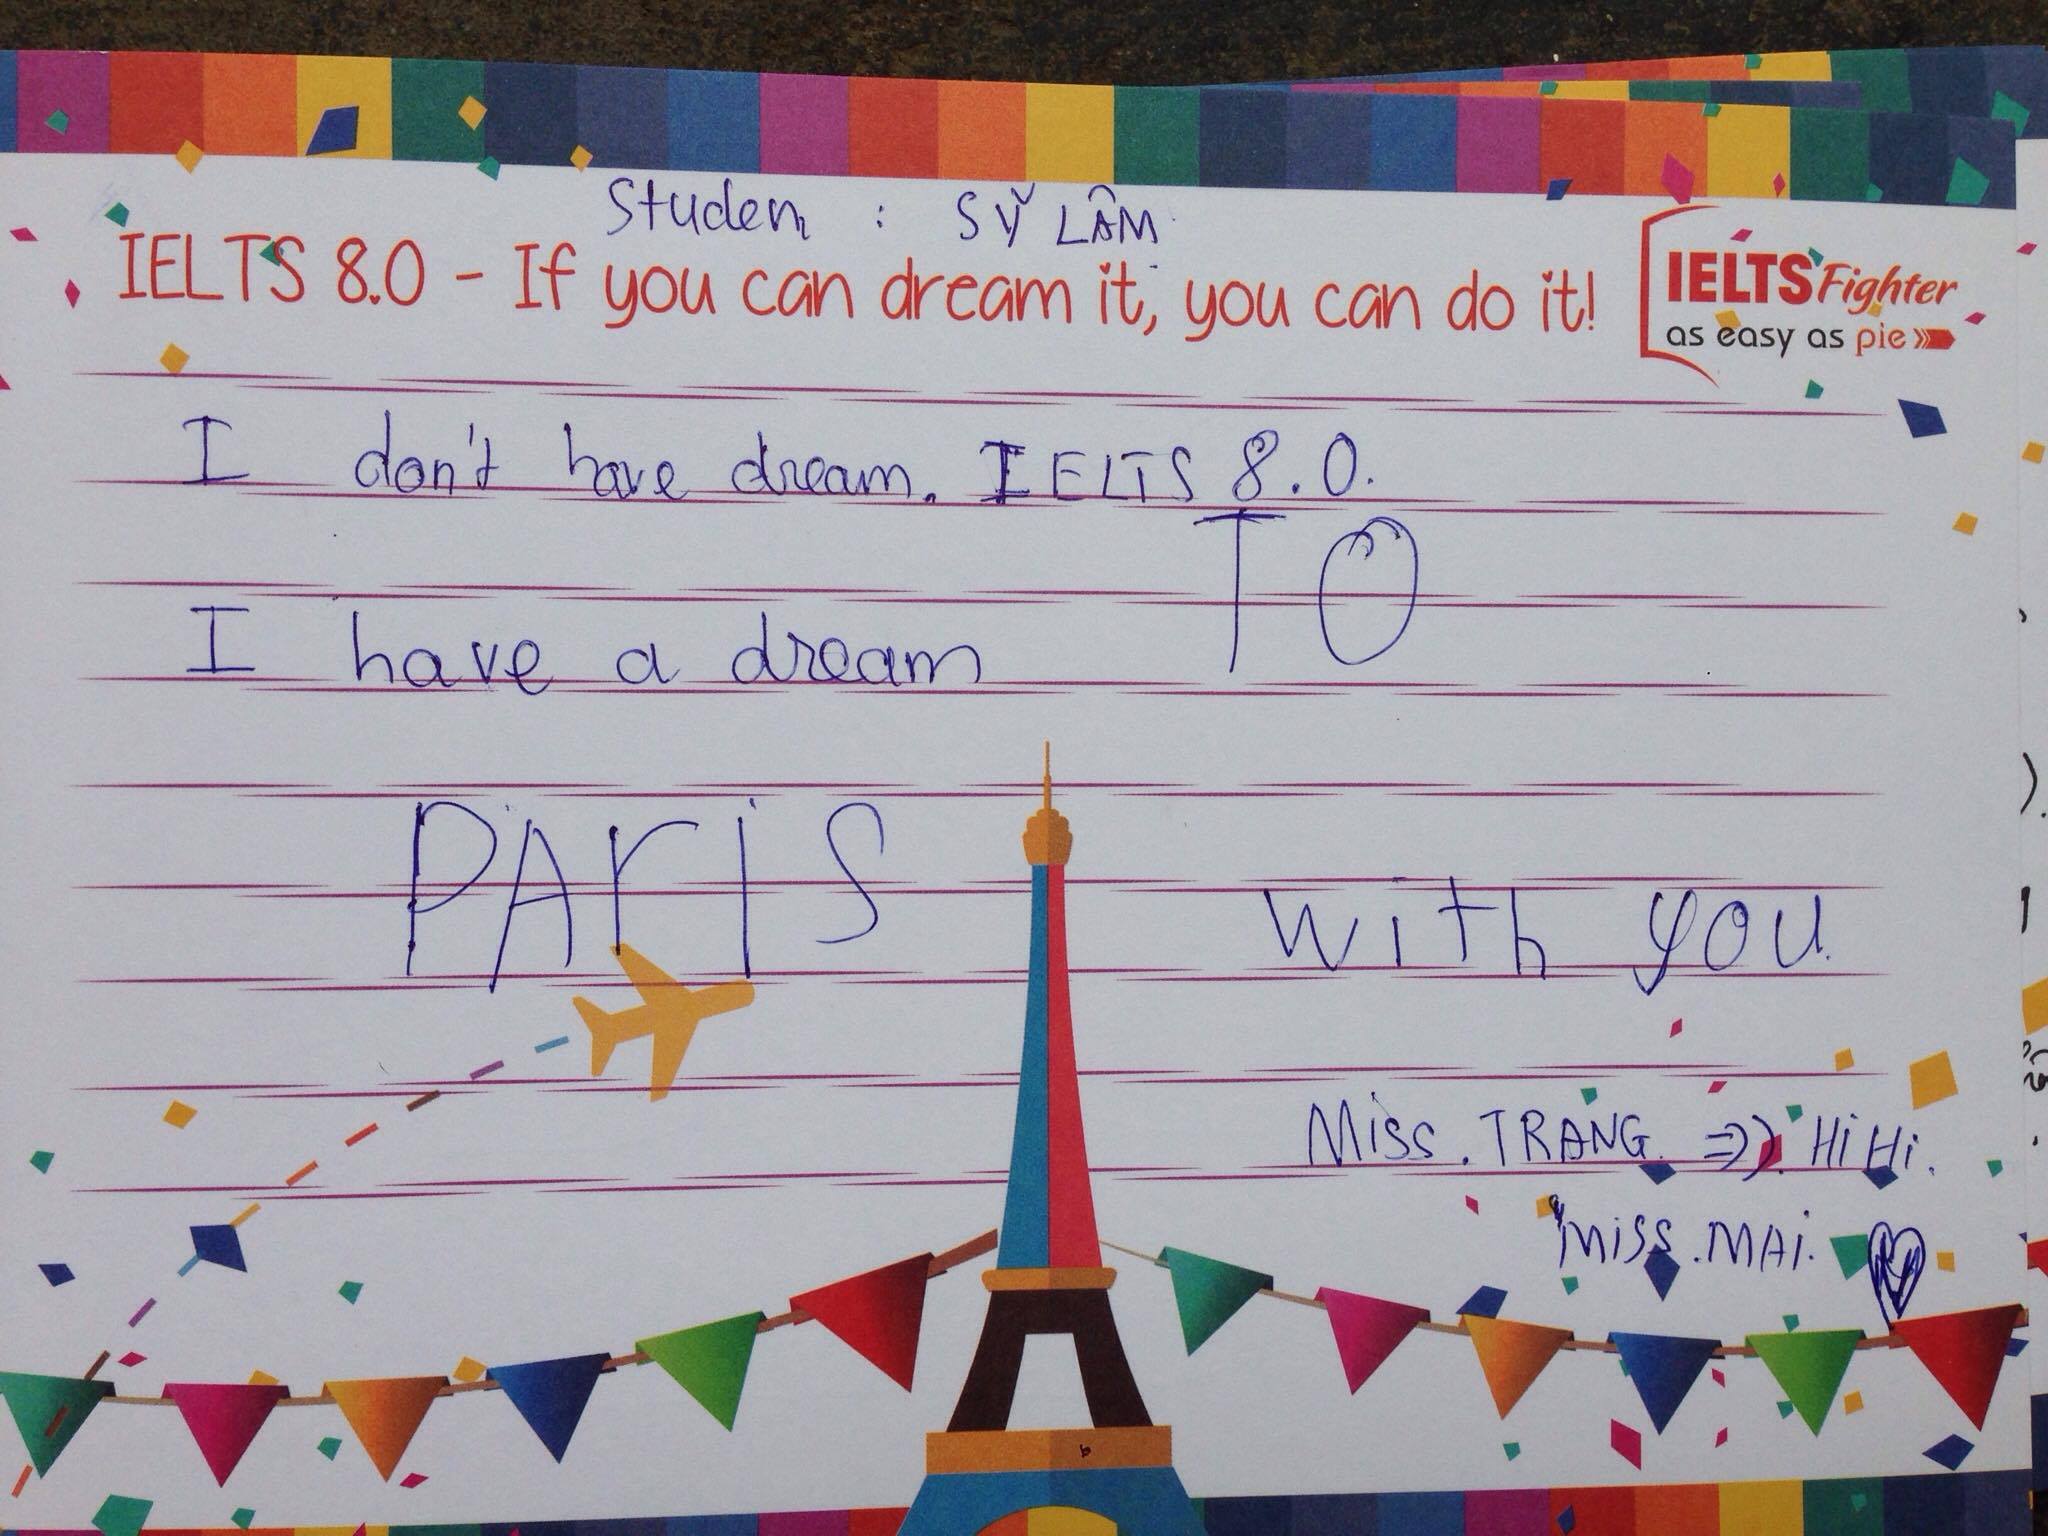 Studen : SỸ LÂM
IELTS 8.0 - If you can dream it, you can do it!
IELTS Fighter
as easy as pie
I don't have dream. IELTS 8.0.
I have a dream TO
PARIS with you.
Miss. TRANG. =)). Hi Hi.
Miss. MAi.